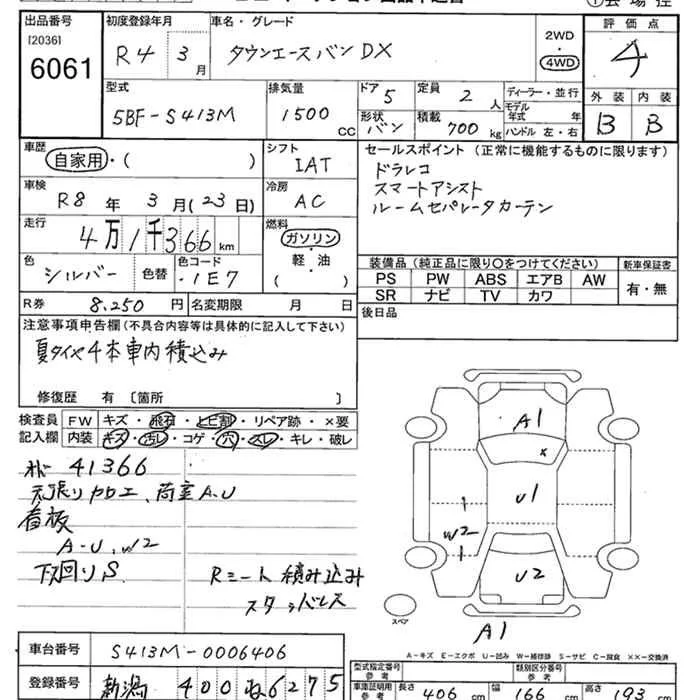 出品番号 初度登録年月 車名・グレード 2WD・4WD 評価点
[2036]
6061 R4 3月 タウンエースバン DX 4
型式 排気量 ドア 5 定員 2人 ディーラー・並行 外装 内装
5BF-S413M 1500cc 形状 バン 積載 700kg モデル年式 年 B B
ハンドル 左・右
車歴 シフト セールスポイント (正常に機能するものに限ります)
自家用・( ) IAT ドラレコ
車検 冷房 スマートアシスト
R8年 3月(23日) AC ルームセパレータカーテン
走行 燃料
4万1千366km ガソリン・軽・油 ( )
色 色替 色コード 装備品 (純正品に限り○をつけてください) 新車保証書
シルバー 1E7 PS PW ABS エアB AW 有・無
SR ナビ TV カワ
R券 8,250円 名変期限 月 日 後日品
注意事項申告欄(不具合内容等は具体的に記入して下さい)
夏タイヤ4本車内積込み
修復歴 有 〔箇所 〕
検査員 FW キズ・飛石・トビ割・リペア跡・×要
記入欄 内装 キズ・汚レ・コゲ・穴・スレ・キレ・破レ
41366
天張り加工、荷室A・U
看板
A-U、W2
下回りS
Rシート積み込み
スタッドレス
A1
×
U1
1
W2
1
U2
スペア
A1
A-キズ E-エクボ U-凹み W-補修跡 S-サビ C-腐食 ××-交換済
車台番号 S413M-0006406 型式指定番号 参考 類別区分番号 参考
登録番号 新潟 400 ぬ 6275 車庫証明用 参考 長さ 406cm 幅 166cm 高さ 193cm